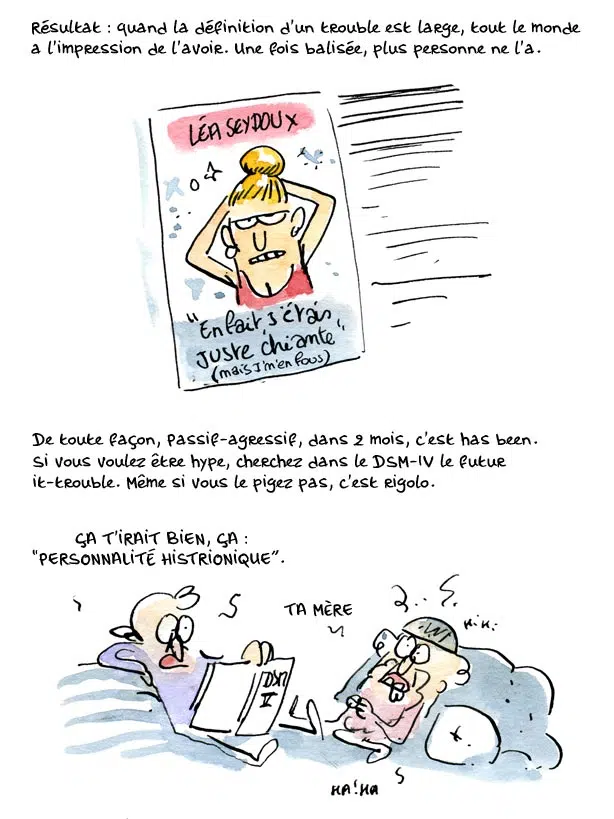 Résultat : quand la définition d'un trouble est large, tout le monde
a l'impression de l'avoir. Une fois balisée, plus personne ne l'a.
LÉA SEYDOUX
"En fait, j'étais
juste chiante"
(mais j'm'en fous)
De toute façon, passif-agressif, dans 2 mois, c'est has been.
Si vous voulez être hype, cherchez dans le DSM-IV le futur
it-trouble. Même si vous le pigez pas, c'est rigolo.
ÇA T'IRAIT BIEN, ÇA :
"PERSONNALITÉ HISTRIONIQUE".
TA MÈRE
Hi Hi
DSM
IV
HA! HA